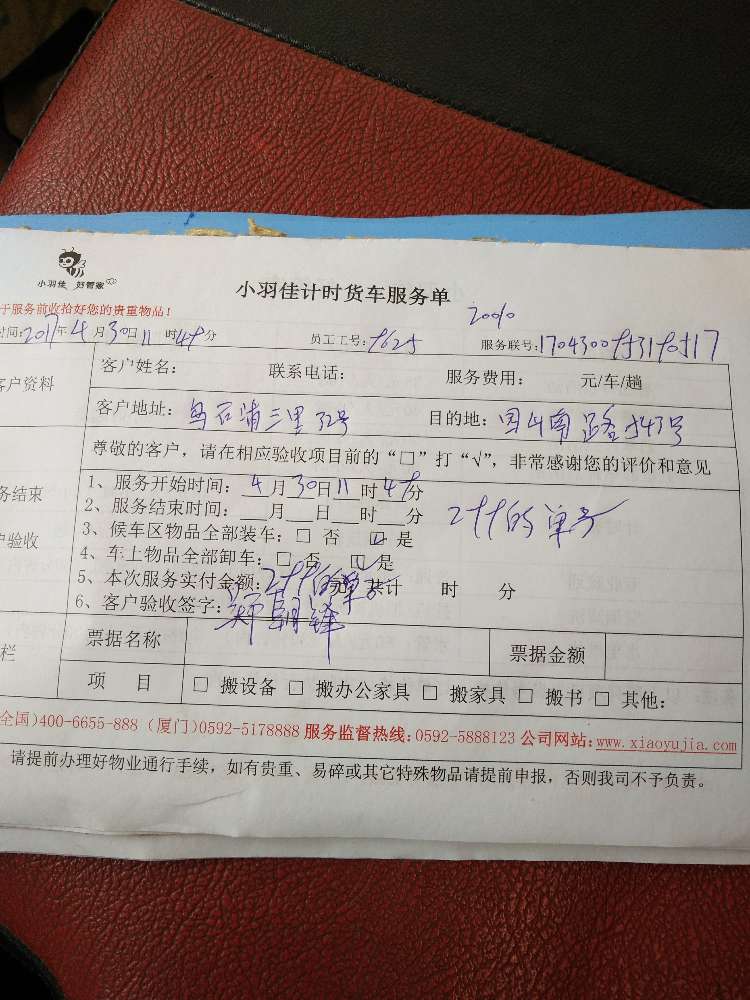 小羽佳 好管家
小羽佳计时货车服务单
于服务前收拾好您的贵重物品!
时间:2017年4月30日11时45分 员工工号: 服务联号:
客户资料
客户姓名: 联系电话: 服务费用: 元/车/趟
客户地址:乌石浦三里32号 目的地:
尊敬的客户,请在相应验收项目前的“□”打“√”,非常感谢您的评价和意见
务结束
户验收
1、服务开始时间:4月30日11时45分
2、服务结束时间:__月__日__时__分
255的单子
3、候车区物品全部装车:□ 否 ☑ 是
4、车上物品全部卸车:□ 否 ☑ 是
5、本次服务实付金额:255的单子 元,共计 时 分
6、客户验收签字:
栏
票据名称 票据金额
项 目 □ 搬设备 □ 搬办公家具 □ 搬家具 □ 搬书 □ 其他:
全国)400-6655-888(厦门)0592-5178888 服务监督热线:0592-5888123 公司网站:www.xiaoyujia.com
请提前办理好物业通行手续,如有贵重、易碎或其它特殊物品请提前申报,否则我司不予负责。